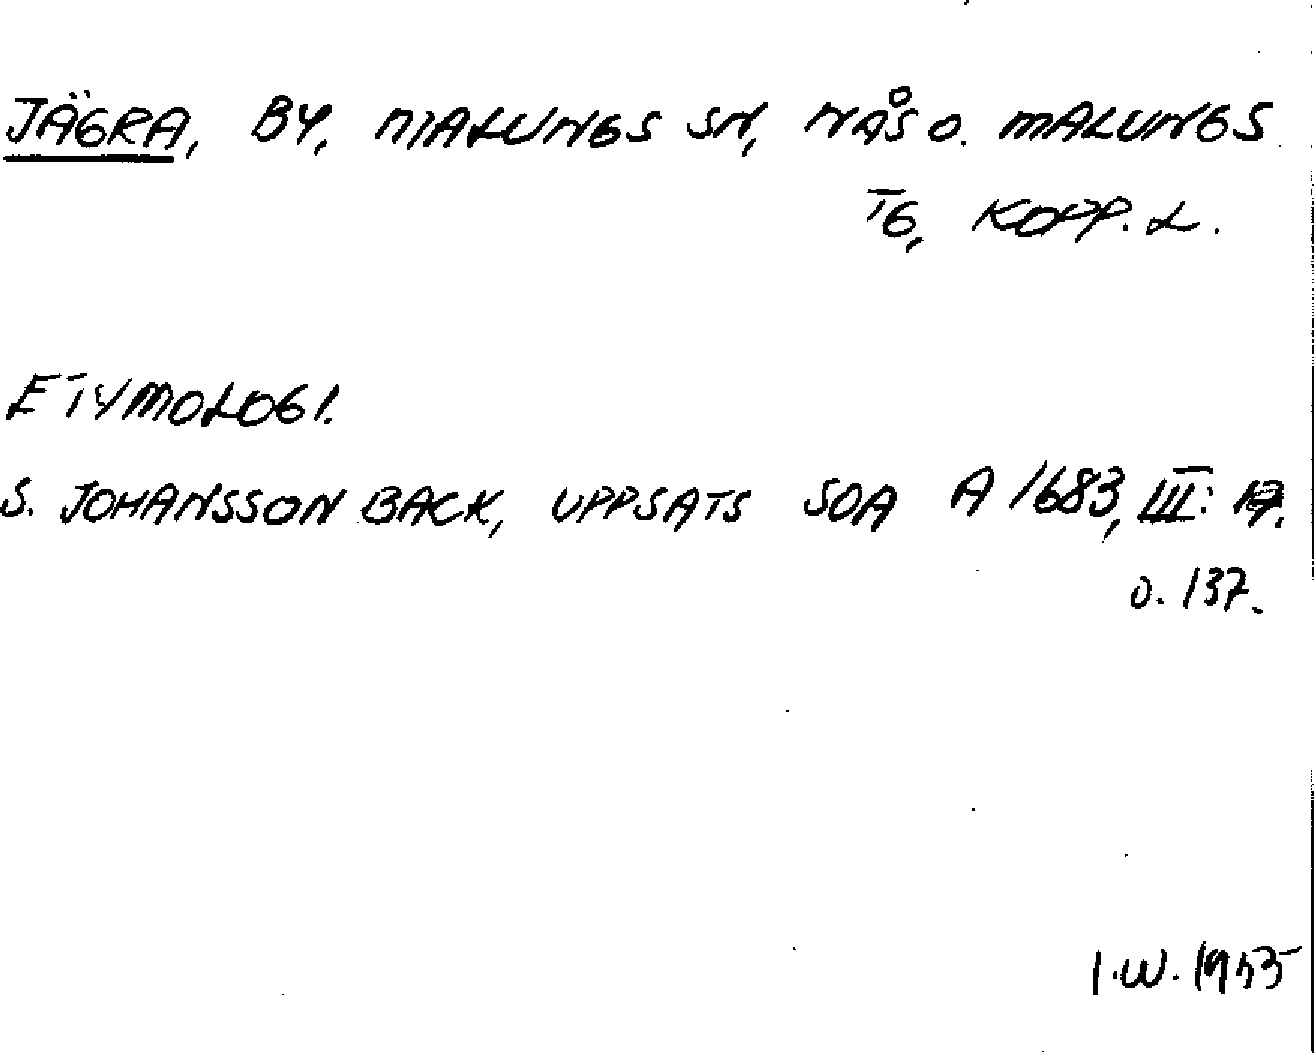 JÄGRA, BY, MALUNGS SN, NÅS O. MALUNGS
TG, KOPP. L.
ETYMOLOGI.
S. JOHANSSON BACK, UPPSATS SOA A 1683, III:
O. 137.
I.W. 1955